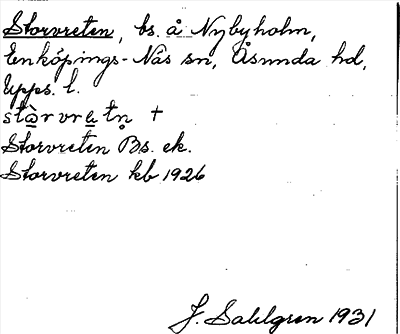 Storvreten, bs. å Nybyholm,
Enköpings-Näs sn, Åsunda hd,
Upps. l.
stòrvretn̥ +
Storvreten Bs. ek.
Storvreten kb 1926
J. Sahlgren 1931